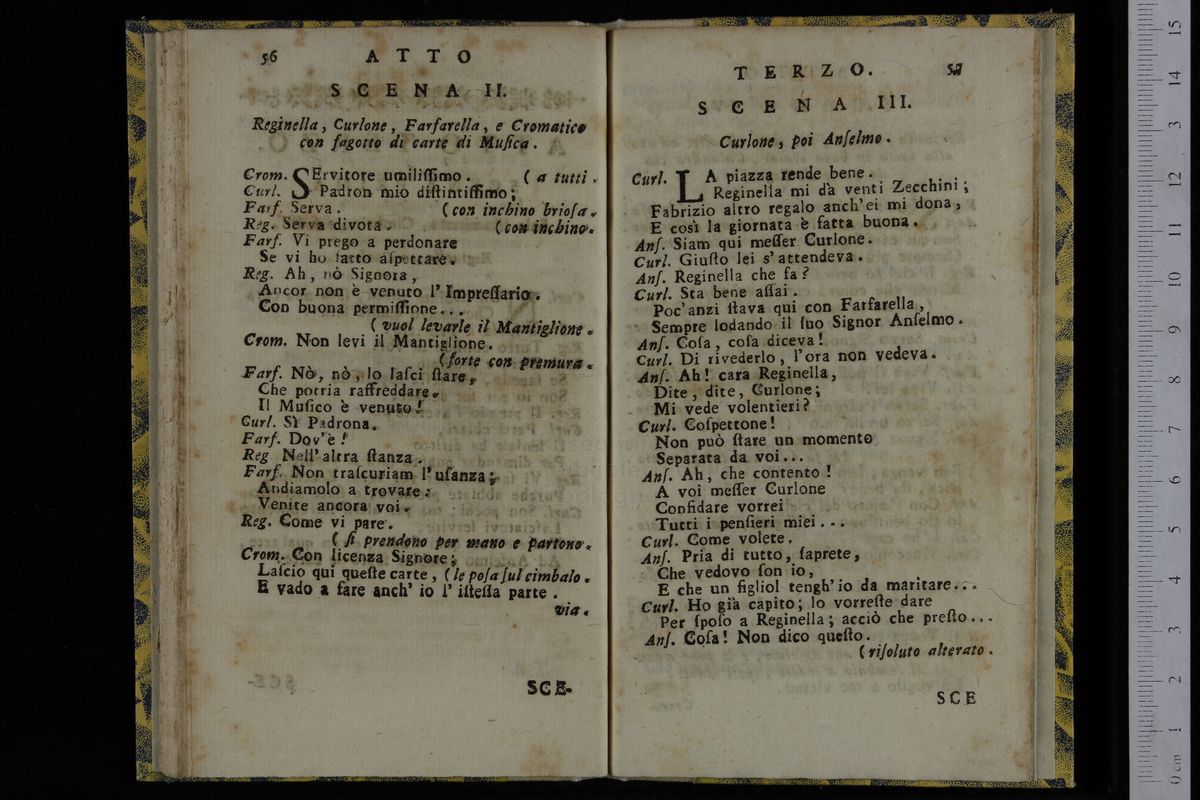 56 ATTO
SCENA II.
Reginella, Curlone, Farfarella, e Cromatico
con fagotto di carte di Muſica.
Crom. SErvitore umiliſſimo. ( a tutti.
Curl. Padron mio diſtintiſſimo;
Farf. Serva. (con inchino brioſa.
Reg. Serva divota. (con inchino.
Farf. Vi prego a perdonare
Se vi ho fatto aſpettare.
Reg. Ah, nò Signora,
Ancor non è venuto l'Impreſſario.
Con buona permiſſione...
( vuol levarle il Mantiglione.
Crom. Non levi il Mantiglione.
(forte con premura.
Farf. Nò, nò, lo laſci ſtare,
Che potria raffreddare.
Il Muſico è venuto!
Curl. Sì Padrona.
Farf. Dov'è!
Reg Nell'altra ſtanza.
Farf. Non traſcuriam l'uſanza;
Andiamolo a trovare:
Venite ancora voi.
Reg. Come vi pare.
( ſi prendono per mano e partono.
Crom. Con licenza Signore;
Laſcio qui queſte carte, (le poſa ſul cimbalo.
E vado a fare anch' io l' iſteſſa parte.
via.
SCE-
TERZO. 57
SCENA III.
Curlone, poi Anſelmo.
Curl. LA piazza rende bene.
Reginella mi dà venti Zecchini;
Fabrizio altro regalo anch'ei mi dona,
E così la giornata è fatta buona.
Anſ. Siam qui meſſer Curlone.
Curl. Giuſto lei s'attendeva.
Anſ. Reginella che fa?
Curl. Sta bene aſſai.
Poc'anzi ſtava qui con Farfarella,
Sempre lodando il ſuo Signor Anſelmo.
Anſ. Coſa, coſa diceva!
Curl. Di rivederlo, l'ora non vedeva.
Anſ. Ah! cara Reginella,
Dite, dite, Curlone;
Mi vede volentieri?
Curl. Coſpettone!
Non può ſtare un momento
Separata da voi...
Anſ. Ah, che contento!
A voi meſſer Curlone
Confidare vorrei
Tutti i penſieri miei...
Curl. Come volete.
Anſ. Pria di tutto, ſaprete,
Che vedovo ſon io,
E che un figliol tengh'io da maritare...
Curl. Ho già capito; lo vorreſte dare
Per ſpoſo a Reginella; acciò che preſto...
Anſ. Coſa! Non dico queſto.
(riſoluto alterato.
SCE